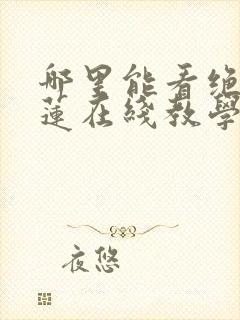 哪里能看绝
莲在线教学
夜悠